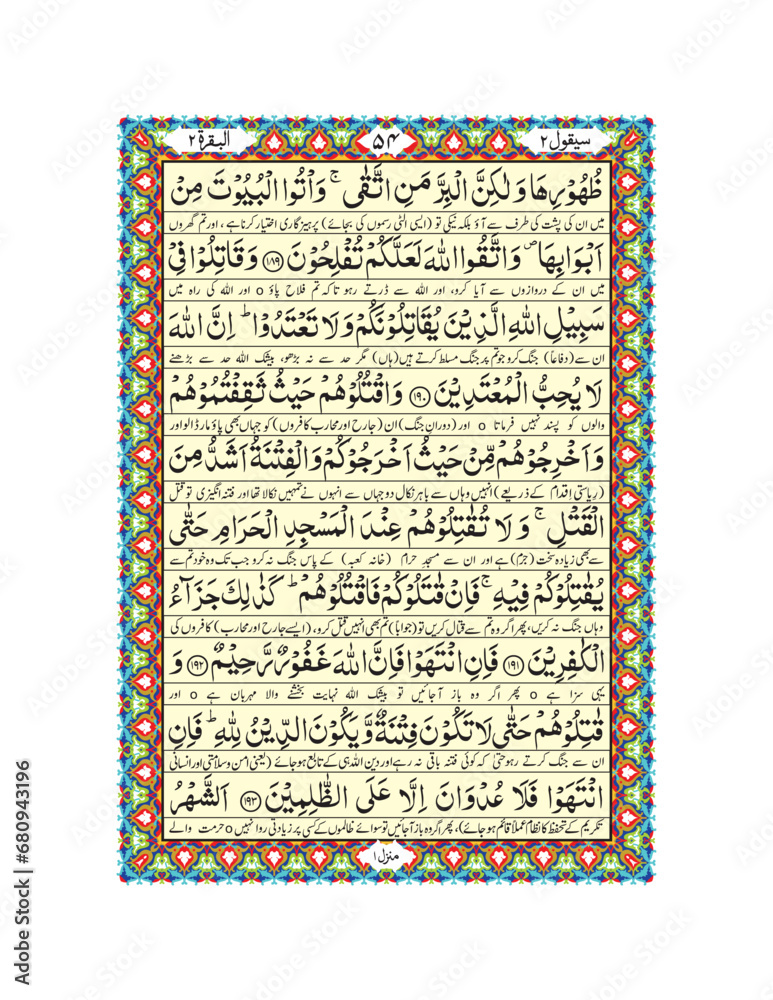 سیقول ۲
۵۴
البقرة ۲
ظُهُوْرِهَا وَلٰكِنَّ الْبِرَّ مَنِ اتَّقٰى ۚ وَاْتُوا الْبُيُوْتَ مِنْ
میں ان کی پشت کی طرف سے آؤ بلکہ نیکی تو (ایسی الٹی رسموں کی بجائے) پرہیزگاری اختیار کرنا ہے، اور تم گھروں
اَبْوَابِهَا ۪ وَاتَّقُوا اللّٰهَ لَعَلَّكُمْ تُفْلِحُوْنَ ﴿۱۸۹﴾ وَقَاتِلُوْا فِيْ
میں ان کے دروازوں سے آیا کرو، اور اللہ سے ڈرتے رہو تاکہ تم فلاح پاؤ o اور اللہ کی راہ میں
سَبِيْلِ اللّٰهِ الَّذِيْنَ يُقَاتِلُوْنَكُمْ وَلَا تَعْتَدُوْا ؕ اِنَّ اللّٰهَ
ان سے (دفاعاً) جنگ کرو جو تم پر جنگ مسلط کرتے ہیں (ہاں) مگر حد سے نہ بڑھو، بیشک اللہ حد سے بڑھنے
لَا يُحِبُّ الْمُعْتَدِيْنَ ﴿۱۹۰﴾ وَاقْتُلُوْهُمْ حَيْثُ ثَقِفْتُمُوْهُمْ
والوں کو پسند نہیں فرماتا o اور (دورانِ جنگ) ان (جارح اور محارب کافروں) کو جہاں بھی پاؤ مار ڈالو اور
وَاَخْرِجُوْهُمْ مِّنْ حَيْثُ اَخْرَجُوْكُمْ وَالْفِتْنَةُ اَشَدُّ مِنَ
(ریاستی اِقدام کے ذریعے) انہیں وہاں سے باہر نکال دو جہاں سے انہوں نے تمہیں نکالا تھا اور فتنہ انگیزی تو قتل
الْقَتْلِ ۚ وَلَا تُقٰتِلُوْهُمْ عِنْدَ الْمَسْجِدِ الْحَرَامِ حَتّٰى
سے بھی زیادہ سخت (جرم) ہے اور ان سے مسجدِ حرام (خانہ کعبہ) کے پاس جنگ نہ کرو جب تک وہ خود تم سے
يُقٰتِلُوْكُمْ فِيْهِ ۚ فَاِنْ قٰتَلُوْكُمْ فَاقْتُلُوْهُمْ ؕ كَذٰلِكَ جَزَآءُ
وہاں جنگ نہ کریں، پھر اگر وہ تم سے قتال کریں تو (جواباً) تم بھی انہیں قتل کرو، (ایسے جارح اور محارب) کافروں کی
الْكٰفِرِيْنَ ﴿۱۹۱﴾ فَاِنِ انْتَهَوْا فَاِنَّ اللّٰهَ غَفُوْرٌ رَّحِيْمٌ ﴿۱۹۲﴾ وَ
یہی سزا ہے o پھر اگر وہ باز آجائیں تو بیشک اللہ نہایت بخشنے والا مہربان ہے o اور
قٰتِلُوْهُمْ حَتّٰى لَا تَكُوْنَ فِتْنَةٌ وَّيَكُوْنَ الدِّيْنُ لِلّٰهِ ؕ فَاِنِ
ان سے جنگ کرتے رہو حتیٰ کہ کوئی فتنہ باقی نہ رہے اور دین اللہ ہی کے تابع ہو جائے (یعنی امن و سلامتی اور انسانی
انْتَهَوْا فَلَا عُدْوَانَ اِلَّا عَلَى الظّٰلِمِيْنَ ﴿۱۹۳﴾ اَلشَّهْرُ
تکریم کے تحفظ کا نظام عملاً قائم ہو جائے)، پھر اگر وہ باز آجائیں تو سوائے ظالموں کے کسی پر زیادتی روا نہیں o حرمت والے
منزل ۱
Adobe Stock | #680943196